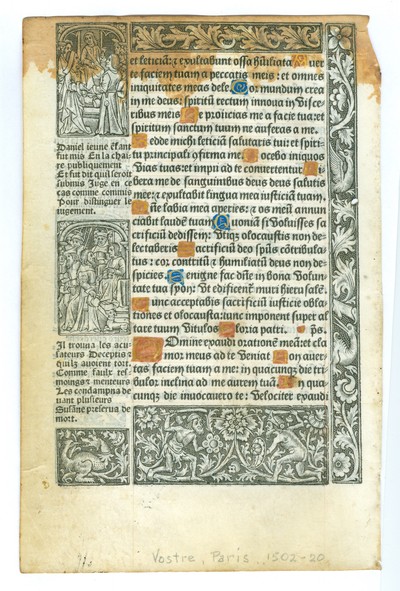 et leticiā: ⁊ exultabunt ossa hūiliata Auer
te faciem tuam a peccatis meis: et omnes
iniquitates meas dele. Cor mundum crea
in me deus: spiritū rectum innoua in visce
ribus meis Ne proiicias me a facie tua: et
spiritum sanctum tuum ne auferas a me.
Redde michi leticiā salutaris tui: et spiri
tu principali ofirma me. Docebo iniquos
vias tuas: et impii ad te conuertentur Li
bera me de sanguinibus deus deus salutis
mee: ⁊ exultabit lingua mea iusticiā tuam.
Dn̄e labia mea aperies: ⁊ os meū annun
ciabit laudē tuam Quoniā si voluisses sa
crificiū dedissem: vtiq̄ olocaustis non de
lectaberis Sacrificiū deo spūs cōtribula
tus: cor contritū ⁊ humiliatū deus non de
spicies. Benigne fac dn̄e in bona volun
tate tua syon: vt edificent̄ muri hierusalē.
Tunc acceptabis sacrificiū iusticie obla
tiones et olocausta: tunc imponent super al
tare tuum vitulos Gloria patri. ps̄.
Domine exaudi orationē meā: et cla
mor meus ad te veniat Non auer
tas faciem tuam a me: in quacunq̄ die tri
bulor inclina ad me aurem tuā. In qua
cunq̄ die inuocauero te: velociter exaudi
Daniel ieune ēfant
fut mis En la chai
re publiquement
Et fut dit quil seroit
submis Juge en ce
cas comme commis
Pour distinguer le
iugement.
Il trouua les acu
sateurs Deceptis ⁊
quilz auoient tort.
Comme faulx tes
moings ⁊ menteurs
Les condampna de
uant plusieurs
Susāne preserua de
mort.
Vostre, Paris 1502-20